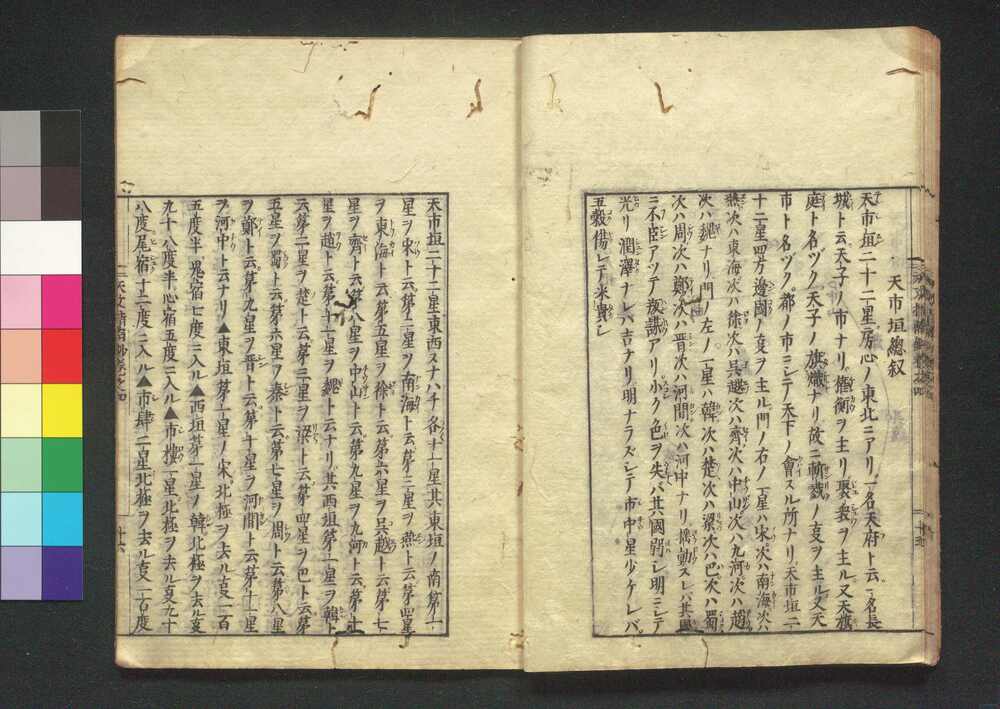 天市垣總叙
天市垣二十二星房心ノ東北ニアリ一名天府ト云一名長
城ト云天子ノ市ナリ權衡ヲ主リ聚衆ヲ主ル又天旗
庭ト名ツク天子ノ旗幟ナリ故ニ斬戮ノ叓ヲ主ル又天
市ト名ヅク都ノ市ニシテ天下ノ會スル所ナリ天市垣二
十二星四方邊國ノ叓ヲ主ル門ノ右ノ一星ハ宋次ハ南海次ハ
燕次ハ東海次ハ徐次ハ呉越次ハ齊次ハ中山次ハ九河次ハ趙
次ハ魏ナリ門ノ左ノ一星ハ韓次ハ楚次ハ梁次ハ巴次ハ蜀
次ハ周次ハ鄭次ハ晋次ハ河間次ハ河中ナリ揺動スレバ其國
ニ不臣アツテ叛謀アリ小ク色ヲ失ハ其國弱シ明ニシテ
光リ潤澤ナレバ吉ナリ明ナラズシテ市中星少ケレバ
五穀傷レテ米貴シ
天市垣二十二星東西スナハチ各十一星其東垣ノ南第一
星ヲ宋ト云第二星ヲ南海ト云第三星ヲ燕ト云第四星
ヲ東海ト云第五星ヲ徐ト云第六星ヲ呉越ト云第七
星ヲ齊ト云第八星ヲ中山ト云第九星ヲ九河ト云第十
星ヲ趙ト云第十一星ヲ魏ト云ナリ其西垣第一星ヲ韓ト
云第二星ヲ楚ト云第三星ヲ梁ト云第四星ヲ巴ト云第
五星ヲ蜀ト云第六星ヲ秦ト云第七星ヲ周ト云第八星
ヲ鄭ト云第九星ヲ晋ト云第十星ヲ河間ト云第十一星
ヲ河中ト云ナリ▲東垣第一星ノ宋北極ヲ去ル叓一百
五度半尾宿七度ニ入ル▲西垣第一星ノ韓北極ヲ去ル叓
九十八度半心宿五度ニ入ル▲市樓一星北極ヲ去ル叓九十
八度尾宿十二度ニ入ル▲市肆二星北極ヲ去ル叓一百度
十六